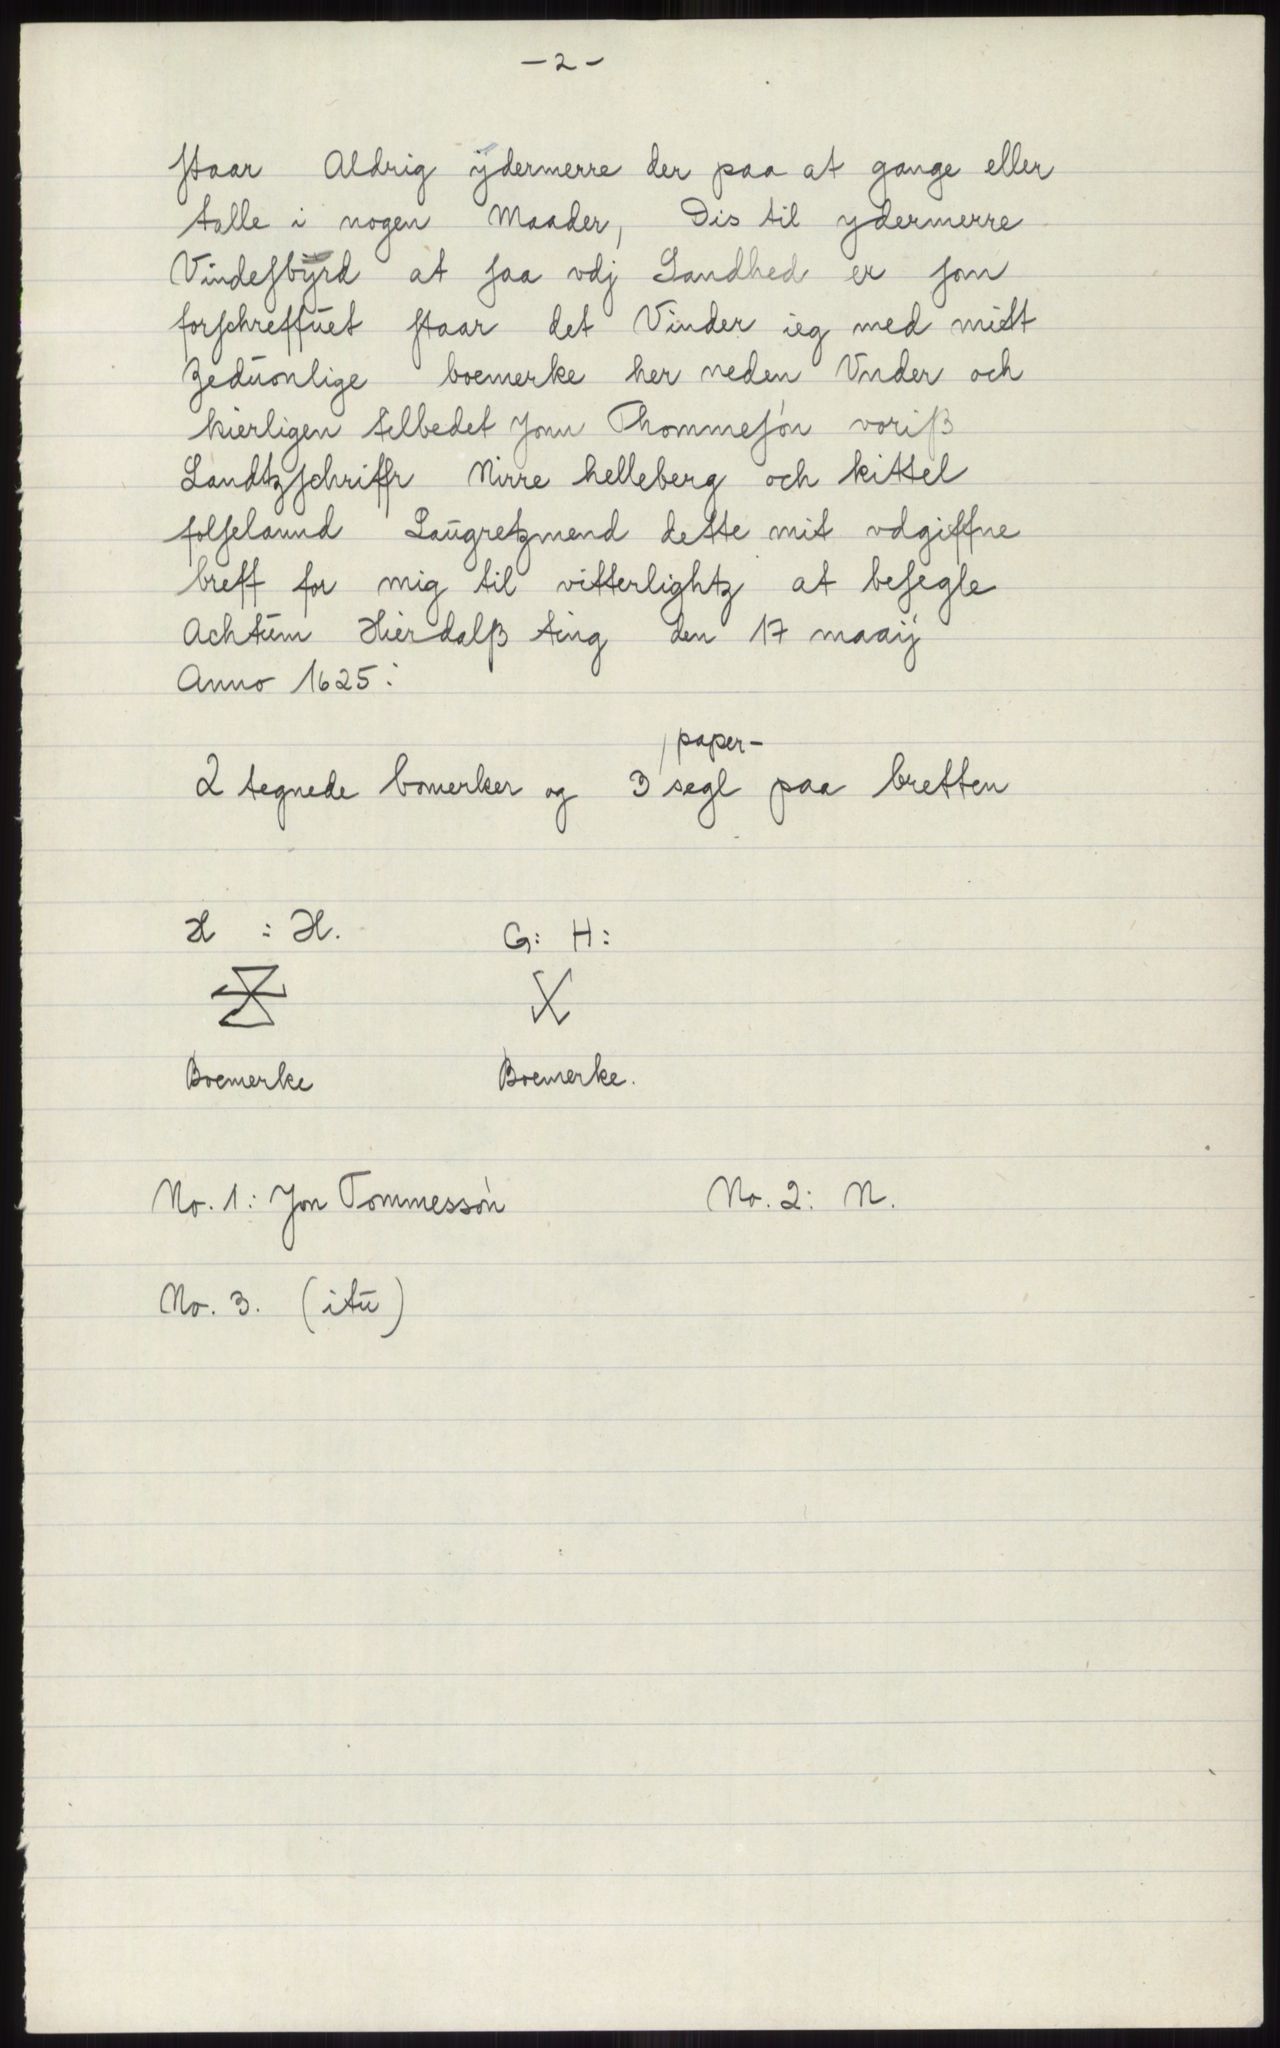 - 2 -
staar Aldrig ÿdermerre der paa at gange eller
talle i nogen Maader, Dis til ydermerre
Vindesbÿrd at saa vdj Sandhed er som
forschreffuet staar det Vinder ieg med mitt
Zeduonlige boemerke her neden Vnder och
kierligen tilbedet Jonn Thommesón voriß
Landtzschriffr Nirre helleberg och kittel
folselannd Laugretzmend dette mit vdgiffne
breff for mig til vitterlightz at besegle
Achtum Hierdalß ting den 17 maaÿ
Anno 1625:
2 tegnede bomerker og 3 paper-segl paa bretten
H : H. G: H:
Boemerke Boemerke.
No. 1: Jon Tommessón No. 2: N.
No. 3. (itu)